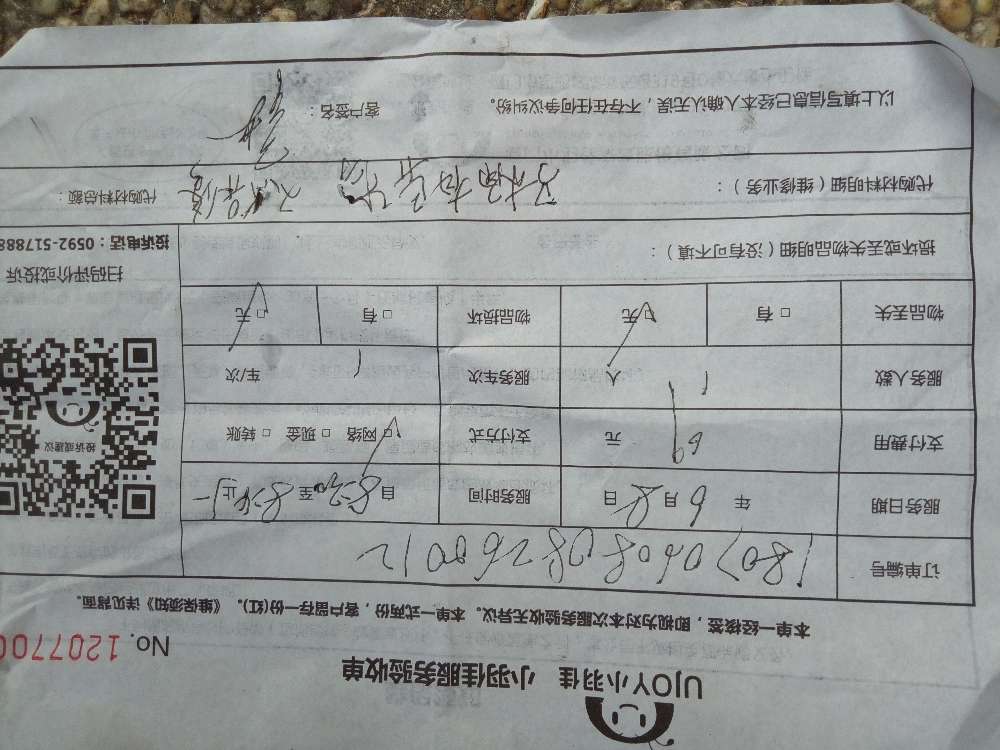 UJOY小羽佳 小羽佳服务验收单
No. 1207700
本单一经核签，即视为对本次服务验收无异议。本单一式两份，客户留存一份(红)。《维保须知》详见背面。
订单编号
服务日期 年 6 月 8 日 服务时间 自 8:30 至 止
支付费用 69 元 支付方式 □ 网络 □ 现金 □ 转账
服务人数 1 人 服务车次 1 车/次
物品丢失 □ 有 □ 无 物品损坏 □ 有 □ 无
损坏或丢失物品明细（没有可不填）：
代购材料明细（维修业务）： 代购材料总额：
以上填写信息已经本人确认无误，不存在任何争议纠纷。 客户签名：
投诉或建议
扫码评价或投诉
投诉电话：0592-517888